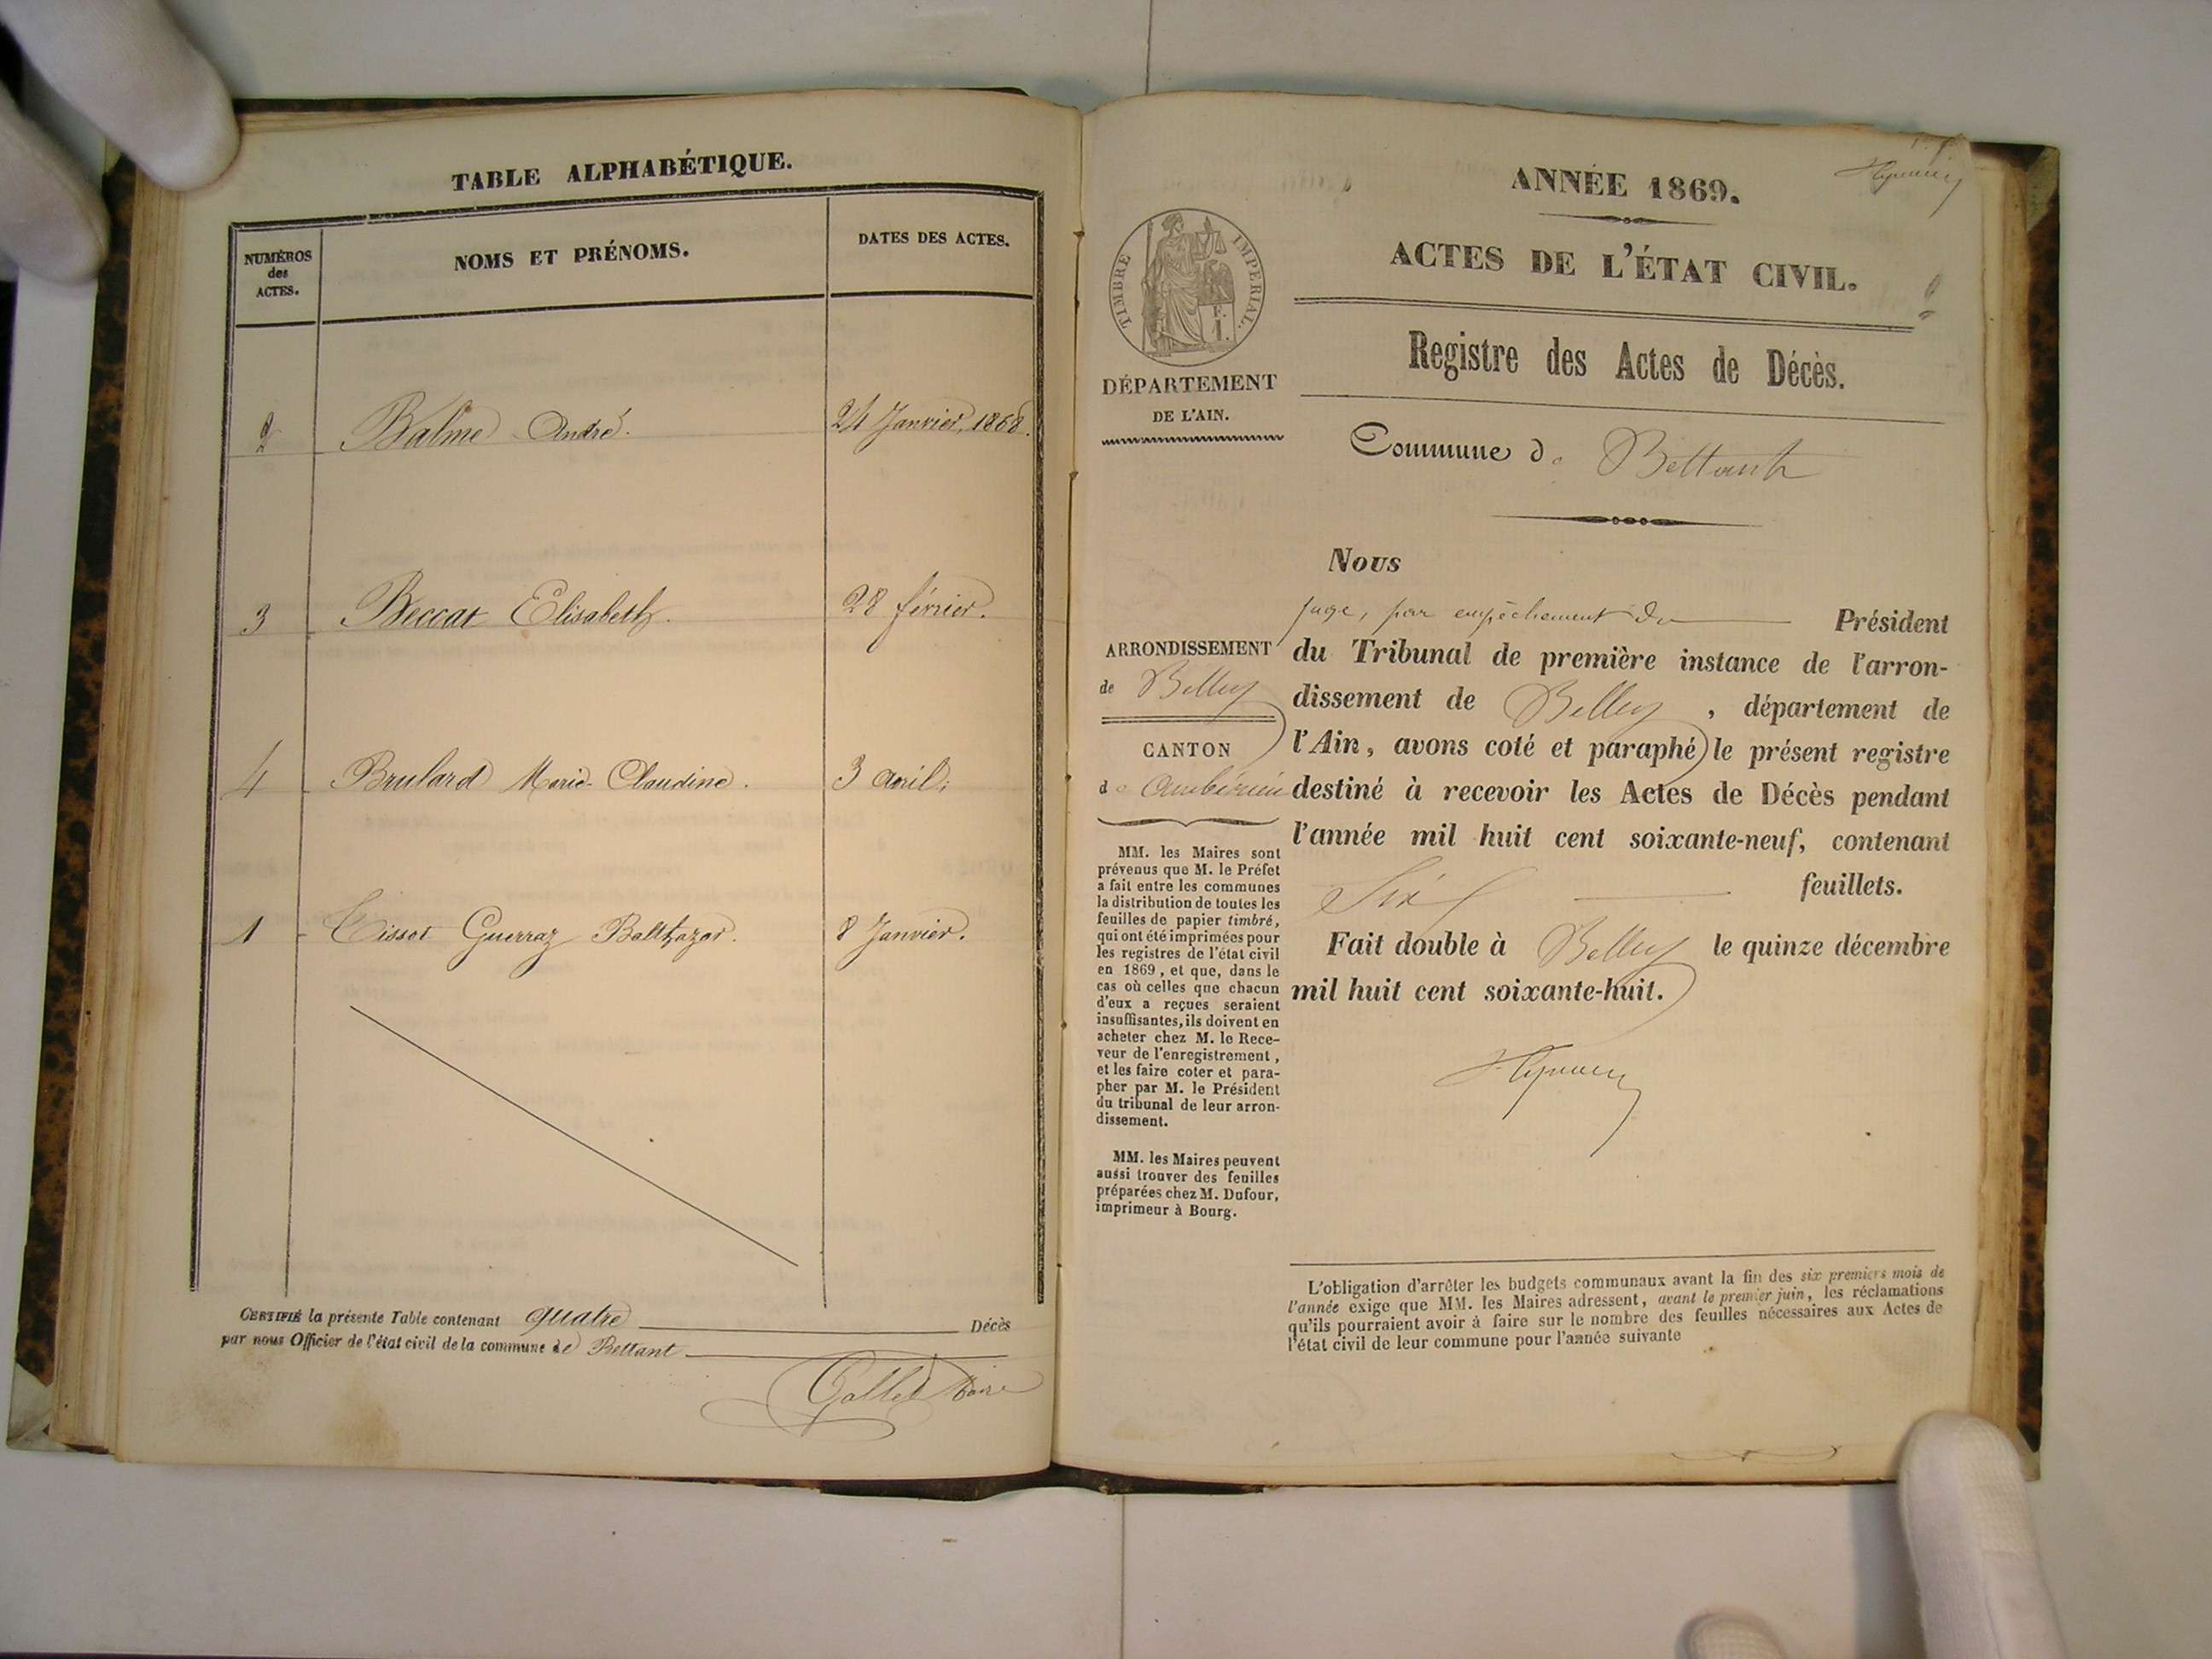 TABLE ALPHABÉTIQUE.
NUMÉROS
des
ACTES.
NOMS ET PRÉNOMS.
DATES DES ACTES.
2 Balme André. 24 Janvier, 1868.
3 Beccat Elisabeth. 28 février.
4 Brulard Marie-Claudine. 3 avril.
1 Tissot Guerraz Balthazar. 8 Janvier.
CERTIFIÉ la présente Table contenant quatre Décès
par nous Officier de l'état civil de la commune de Bettant
Maire
ANNÉE 1869.
ACTES DE L'ÉTAT CIVIL.
TIMBRE IMPÉRIAL.
F.
1.
Registre des Actes de Décès.
DÉPARTEMENT
DE L'AIN.
Commune de Bettant
ARRONDISSEMENT
de Belley
CANTON
de Ambérieu
MM. les Maires sont
prévenus que M. le Préfet
a fait entre les communes
la distribution de toutes les
feuilles de papier timbré,
qui ont été imprimées pour
les registres de l'état civil
en 1869, et que, dans le
cas où celles que chacun
d'eux a reçues seraient
insuffisantes, ils doivent en
acheter chez M. le Rece-
veur de l'enregistrement,
et les faire coter et para-
pher par M. le Président
du tribunal de leur arron-
dissement.
MM. les Maires peuvent
aussi trouver des feuilles
préparées chez M. Dufour,
imprimeur à Bourg.
Nous
juge, par empêchement du Président
du Tribunal de première instance de l'arron-
dissement de Belley, département de
l'Ain, avons coté et paraphé le présent registre
destiné à recevoir les Actes de Décès pendant
l'année mil huit cent soixante-neuf, contenant
Six feuillets.
Fait double à Belley le quinze décembre
mil huit cent soixante-huit.
L'obligation d'arrêter les budgets communaux avant la fin des six premiers mois de
l'année exige que MM. les Maires adressent, avant le premier juin, les réclamations
qu'ils pourraient avoir à faire sur le nombre des feuilles nécessaires aux Actes de
l'état civil de leur commune pour l'année suivante